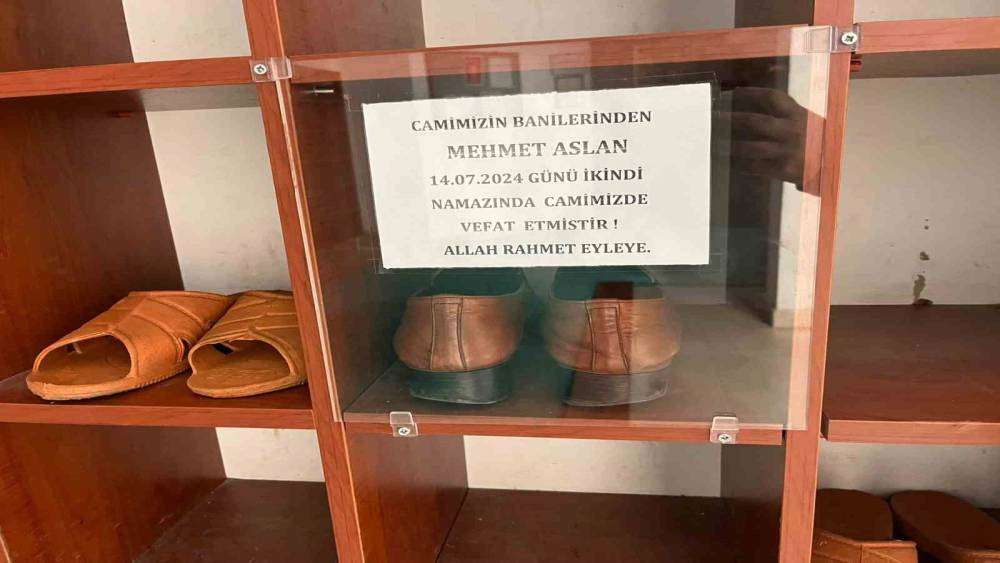 CAMİMİZİN BANİLERİNDEN
MEHMET ASLAN
14.07.2024 GÜNÜ İKİNDİ
NAMAZINDA CAMİMİZDE
VEFAT ETMİSTİR !
ALLAH RAHMET EYLEYE.